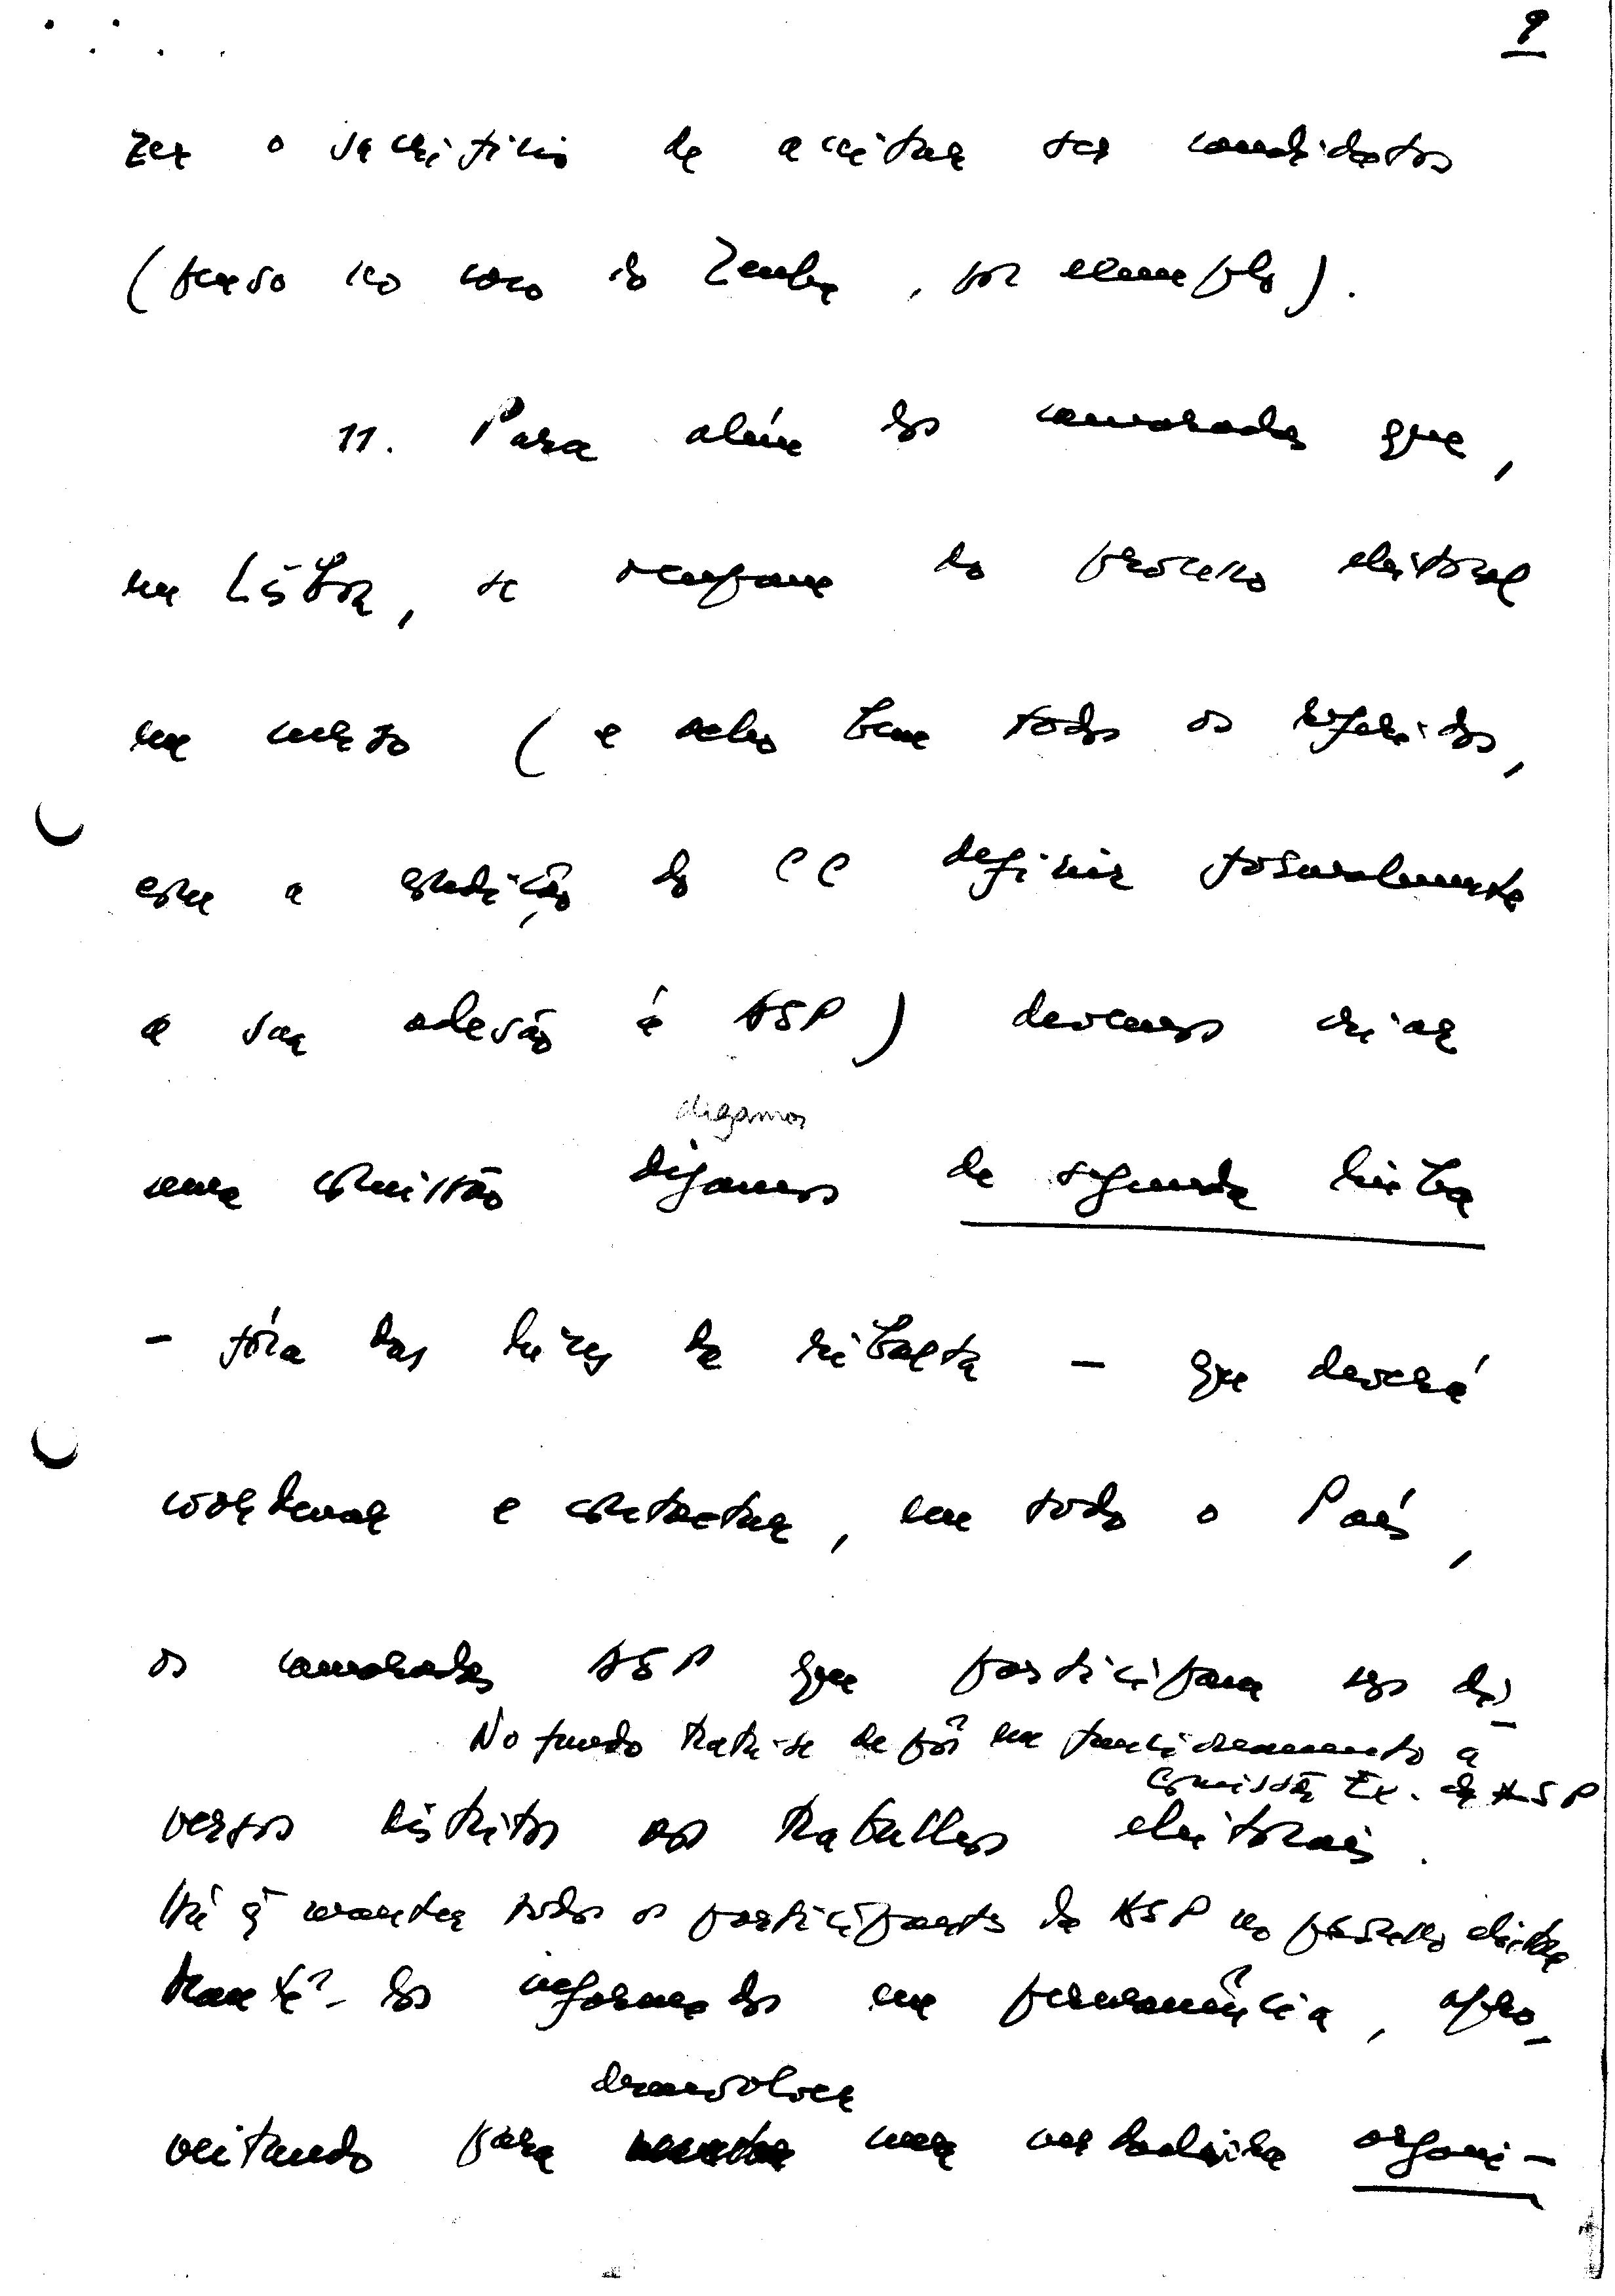 9
zer o sacrifício de aceitar ser candidatos
(penso no caso do Zenha, por exemplo).
11. Para além dos camaradas que,
em Lisboa, se ocupam do processo eleitoral
em curso (e acho bem todos os referidos,
com a excepção do CC definir
a sua adesão à ASP) devemos criar
digamos
uma comissão digamos de segunda linha
- fóra das luzes da ribalta - que deverá
coordenar e contactar, em todo o País,
os camaradas ASP que participam nos di-
No fundo trata-se de pôr em funcionamento a
Comissão Ex. da ASP
versos distritos nos trabalhos eleitorais.
Há q̃ manter todos os participantes da ASP no processo eleitoral
informados em permanência, apro-
desenvolver
veitando para uma verdadeira organi-